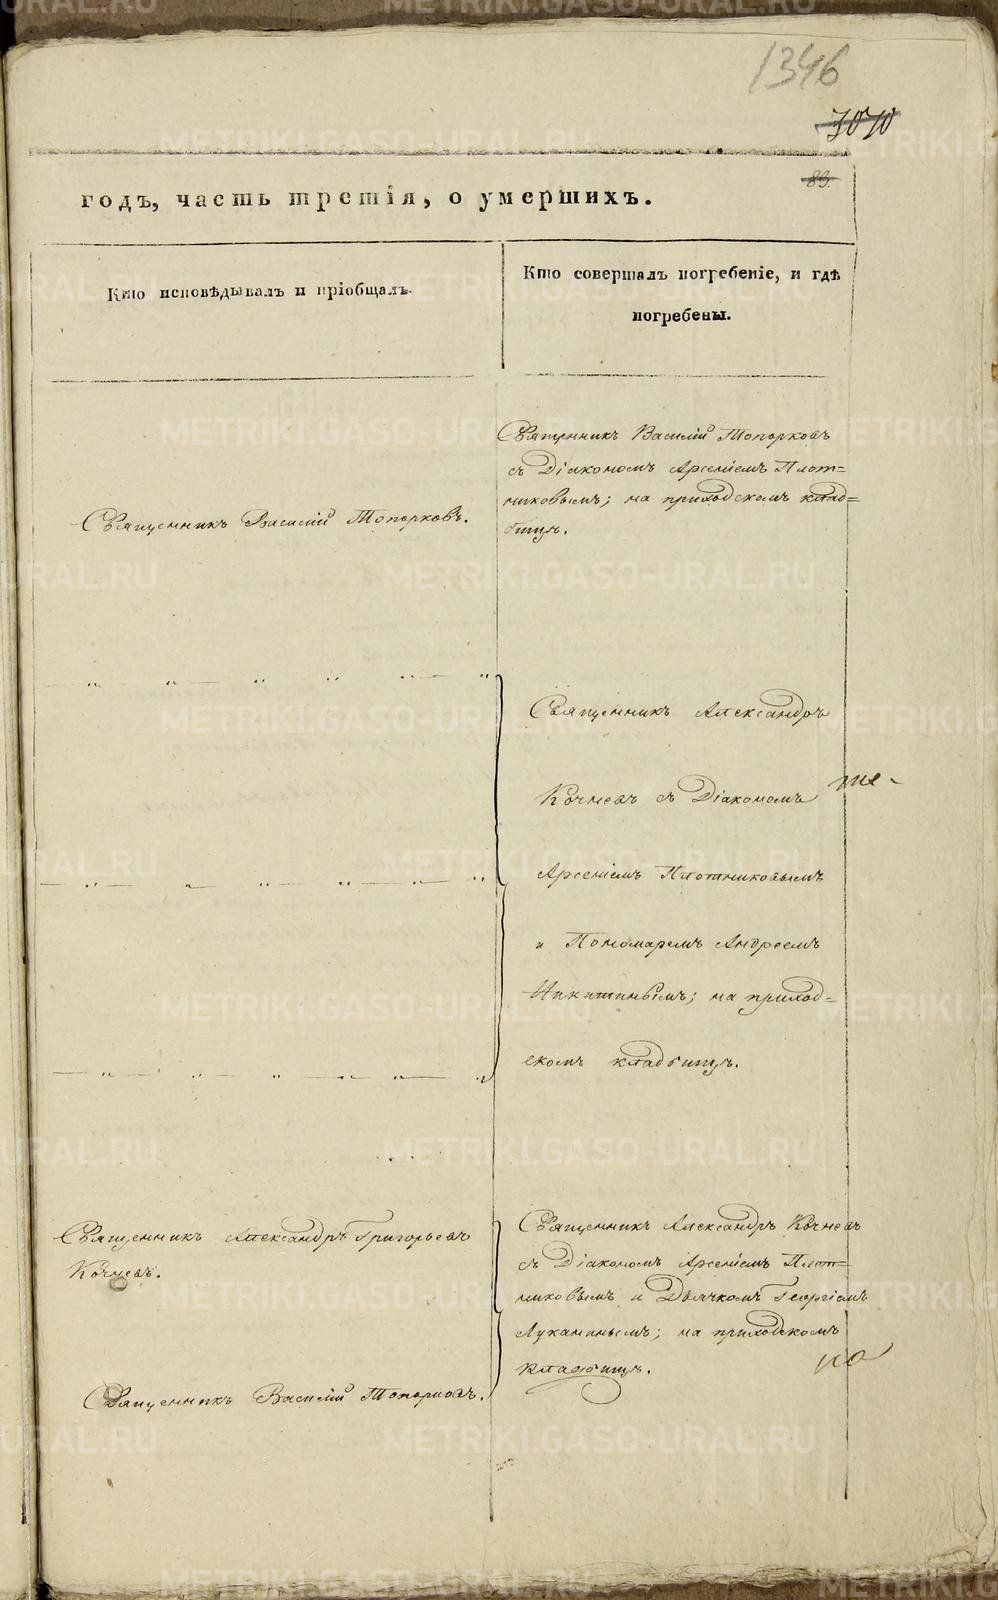 1346
7070
83.
годъ, часть третія, о умершихъ.
Кто исповѣдывалъ и пріобщалъ.
Кто совершалъ погребеніе, и гдѣ
погребены.
Священникъ Василій Топорковъ
съ Діакономъ Арсеніемъ Плот=
никовымъ; на приходскомъ клад=
бищѣ.
Священникъ Василій Топорковъ.
Священникъ Александръ
Кочневъ съ Діакономъ
Арсеніемъ Плотниковымъ
и Пономаремъ Андреемъ
Никитинымъ; на приход=
скомъ кладбищѣ.
Священникъ Александръ Григорьевъ
Кочневъ.
Священникъ Александръ Кочневъ
съ Діакономъ Арсеніемъ Плот=
никовымъ и Дьячкомъ Георгіемъ
Лукинымъ; на приходскомъ
кладбищѣ.
но
Священникъ Василій Топорковъ.
METRIKI.GASO-URAL.RU